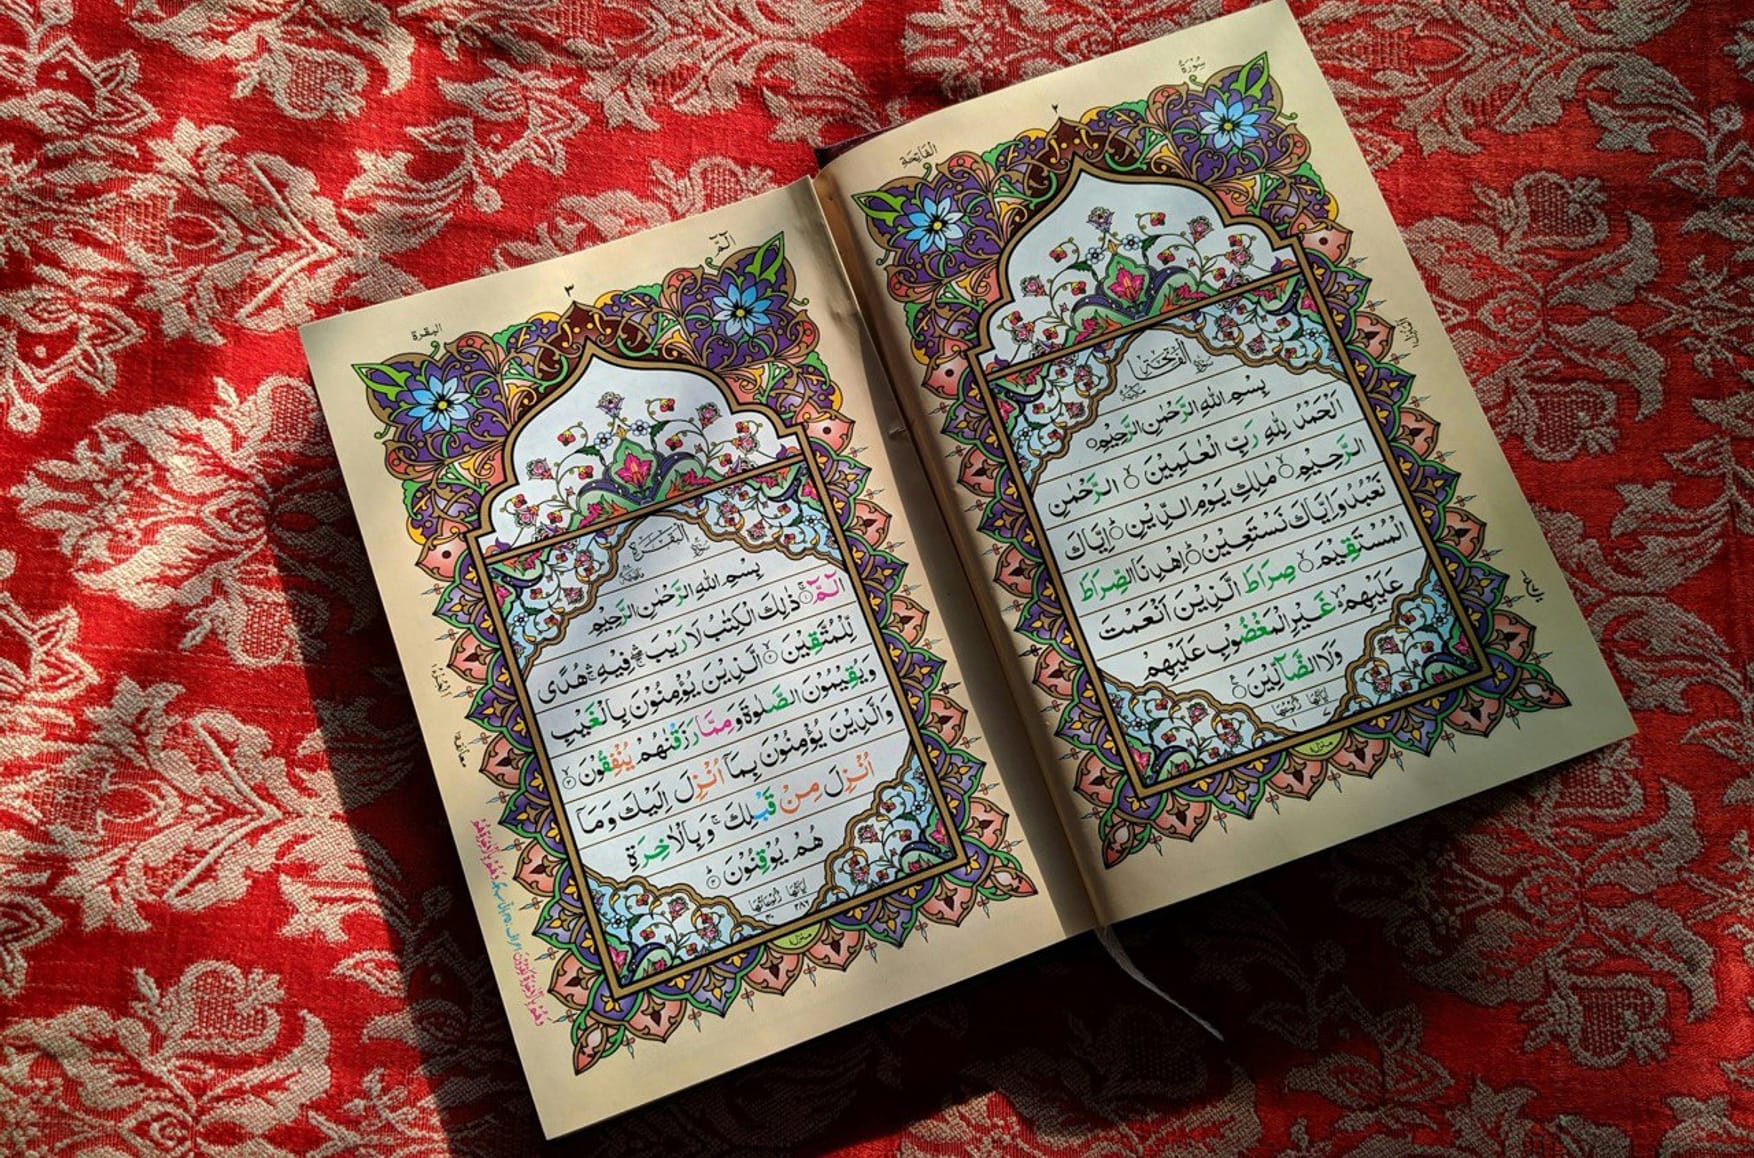 سورة
٢
الفاتحة
سورة الفاتحة مكية
بِسْمِ اللهِ الرَّحْمٰنِ الرَّحِيْمِ
اَلْحَمْدُ لِلّٰهِ رَبِّ الْعٰلَمِيْنَ ۙ الرَّحْمٰنِ
الرَّحِيْمِ ۙ مٰلِكِ يَوْمِ الدِّيْنِ ؕ اِيَّاكَ
نَعْبُدُ وَاِيَّاكَ نَسْتَعِيْنُ ؕ اِهْدِنَا الصِّرَاطَ
الْمُسْتَقِيْمَ ۙ صِرَاطَ الَّذِيْنَ اَنْعَمْتَ
عَلَيْهِمْ ۙ غَيْرِ الْمَغْضُوْبِ عَلَيْهِمْ
وَلَا الضَّآلِّيْنَ
اٰيَاتُهَا ٧ رُكُوْعُهَا ١
منزل ١
الٓمّٓ
٣
البقرة
سورة البقرة
بِسْمِ اللهِ الرَّحْمٰنِ الرَّحِيْمِ
الٓمّٓ ۚ ذٰلِكَ الْكِتٰبُ لَا رَيْبَ ۛ فِيْهِ ۛ هُدًى
لِّلْمُتَّقِيْنَ ۙ الَّذِيْنَ يُؤْمِنُوْنَ بِالْغَيْبِ
وَيُقِيْمُوْنَ الصَّلٰوةَ وَمِمَّا رَزَقْنٰهُمْ يُنْفِقُوْنَ ۙ
وَالَّذِيْنَ يُؤْمِنُوْنَ بِمَاۤ اُنْزِلَ اِلَيْكَ وَمَاۤ
اُنْزِلَ مِنْ قَبْلِكَ ۚ وَبِالْاٰخِرَةِ
هُمْ يُوْقِنُوْنَ ؕ
اٰيَاتُهَا ٢٨٦ رُكُوْعَاتُهَا ٤٠
منزل ١